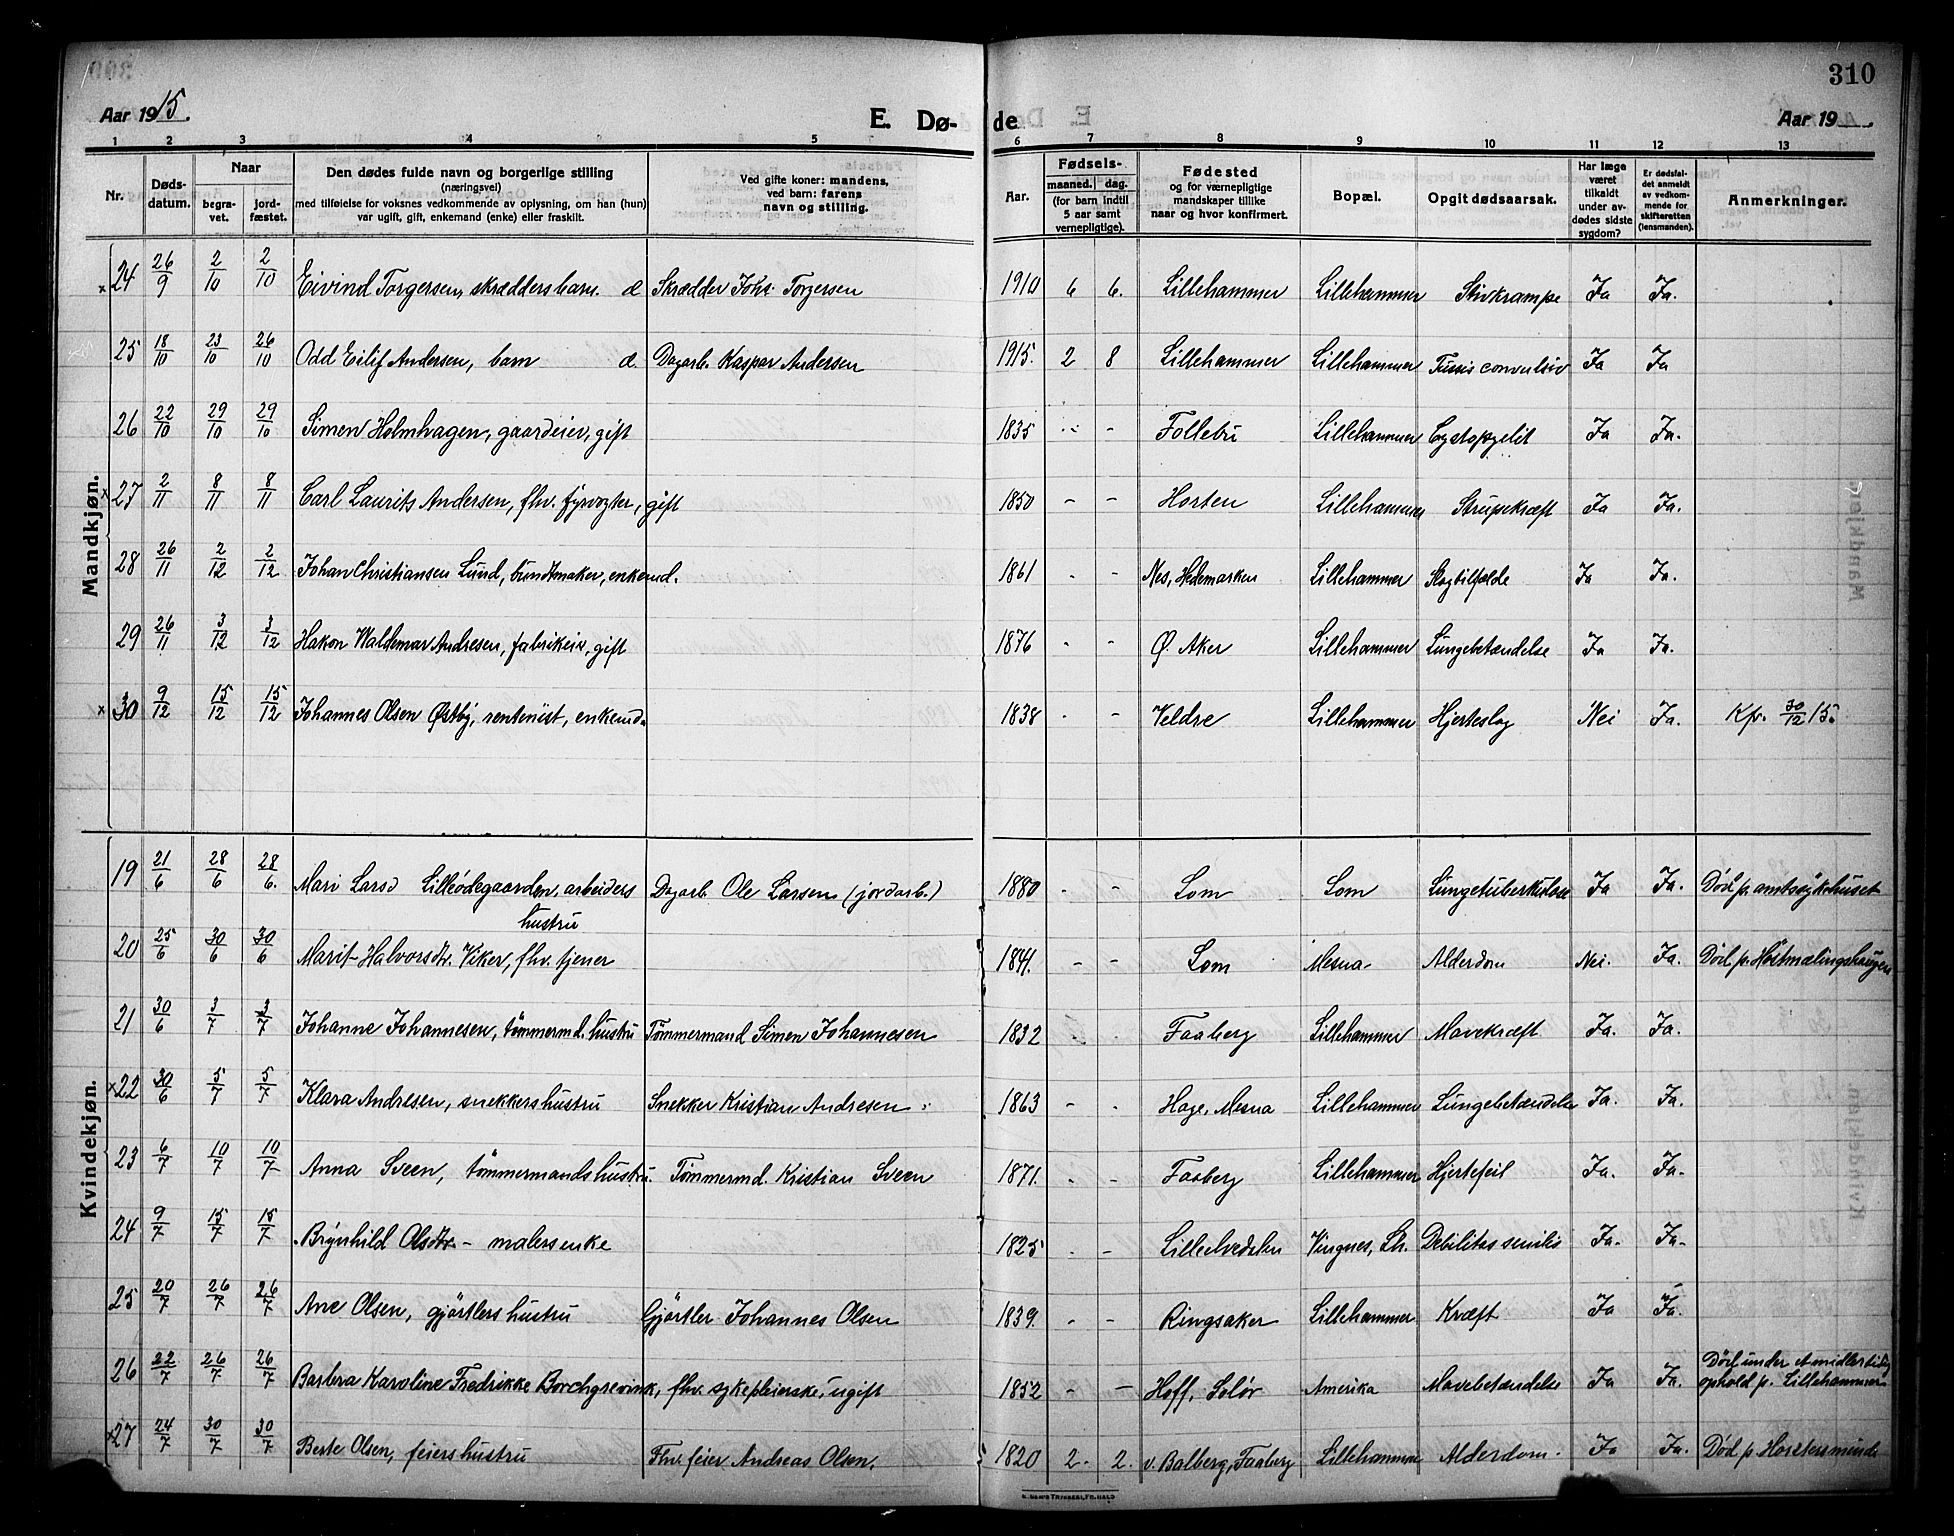 310
Aar 1915.
E. Dø-
de
Aar 19
1 2 3 4 5 6 7 8 9 10 11 12 13
Nr.
Døds-
datum.
Naar
begra-
vet.
jord-
fæstet.
Den dødes fulde navn og borgerlige stilling
(næringsvei)
med tilføielse for voksnes vedkommende av oplysning, om han (hun)
var ugift, gift, enkemand (enke) eller fraskilt.
Ved gifte koner: mandens,
ved barn: farens
navn og stilling.
Aar.
Fødsels-
maaned. dag.
(for barn indtil
5 aar samt
vernepligtige).
Fødested
og for værnepligtige
mandskaper tillike
naar og hvor konfirmert.
Bopæl.
Opgit dødsaarsak.
Har læge
været
tilkaldt
under av-
dødes sidste
sygdom?
Er dødsfal-
det anmeldt
av vedkom-
mende for
skifteretten
(lensmanden).
Anmerkninger.
Mandkjøn.
x 24 26/9 2/10 2/10 Eivind Torgersen, skrædders barn. d Skrædder Johs. Torgersen 1910 6 6. Lillehammer Lillehammer Stivkrampe Ja Ja.
25 18/10 23/10 26/10 Odd Eilif Andersen, barn d. Dagarb. Kaspar Andersen 1915. 2 8 Lillehammer Lillehammer Tussis convulsiv Ja Ja
26 22/10 29/10 29/10 Simen Holmhagen, gaardeier, gift 1835 - - Follebu Lillehammer Cystopyelit Ja Ja.
x 27 2/11 8/11 8/11 Carl Laurits Andersen, fhv. fyrvogter, gift 1850 - - Horten Lillehammer Strupekræft Ja Ja.
28 26/11 2/12 2/12 Johan Christiansen Lund, bundtmaker, enkemd. 1861 - - Nes, Hedemarken Lillehammer Slagtilfælde Ja Ja.
29 26/11 3/12 3/12 Hakon Waldemar Andresen, fabrikeier, gift 1876 - - Ø. Aker Lillehammer Lungebetændelse Ja Ja.
x 30 9/12 15/12 15/12 Johannes Olsen Østby, rentenist, enkemd. 1838 - - Veldre Lillehammer Hjerteslag Nei Ja. Kfr. 30/12 15.
Kvindekjøn.
19 21/6 28/6 28/6. Mari Larsd Lilleødegaarden, arbeiders Dagarb. Ole Larsen (jordarb.) 1880 - - Lom Lom Lungetuberkulose Ja Ja. Død p. amtssykehuset
hustru
20 25/6 30/6 30/6 Marit Halvorsdtr. Viker, fhv. tjener 1841. - - Lom Mesna- Alderdom Nei. Ja. Død p. Høstmælingshaugen
21 30/6 3/7 3/7 Johanne Johannesen, tømmermd. hustru Tømmermand Simen Johannesen 1832 - - Faaberg Lillehammer Mavekræft Ja. Ja.
x 22 30/6 5/7 5/7 Klara Andresen, snekkers hustru Snekker Kristian Andresen 1863 - - Hage, Mesna Lillehammer Lungebetændelse Ja. Ja.
23 6/7 10/7 10/7 Anna Sveen, tømmermands hustru. Tømmermd. Kristian Sveen 1871. - - Faaberg Lillehammer Hjertefeil Ja. Ja.
24 9/7 15/7 15/7 Brynhild Olsdtr. - malers enke 1825 - - Lilleelvedalen Vingnes, Lh. Debilitas senilis Ja. Ja-
25 20/7 26/7 26/7 Ane Olsen, gjørtlers hustru Gjørtler Johannes Olsen 1839. - - Ringsaker Lillehammer Kræft Ja Ja.
26 22/7 26/7 26/7 Barbra Karoline Fredrikke Borchgrevink, fhv. sykepleierske, ugift 1852 - - Hoff, Solør Amerika Mavebetændelse Ja Ja. Død under et midlertidig
ophold p. Lillehammer
x 27 24/7 30/7 30/7 Berte Olsen, feiers hustru Fhv. feier Andreas Olsen. 1820 2. 2. v. Balberg, Faaberg Lillehammer Alderdom. Ja Ja. Død p.